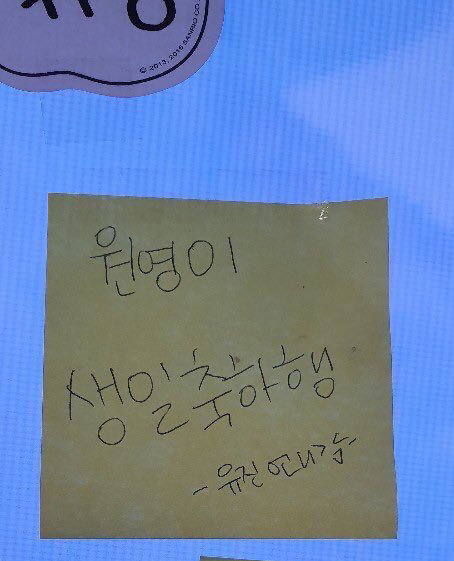 © 2013, 2016 SANRIO CO
원영이
생일축하행
-유진